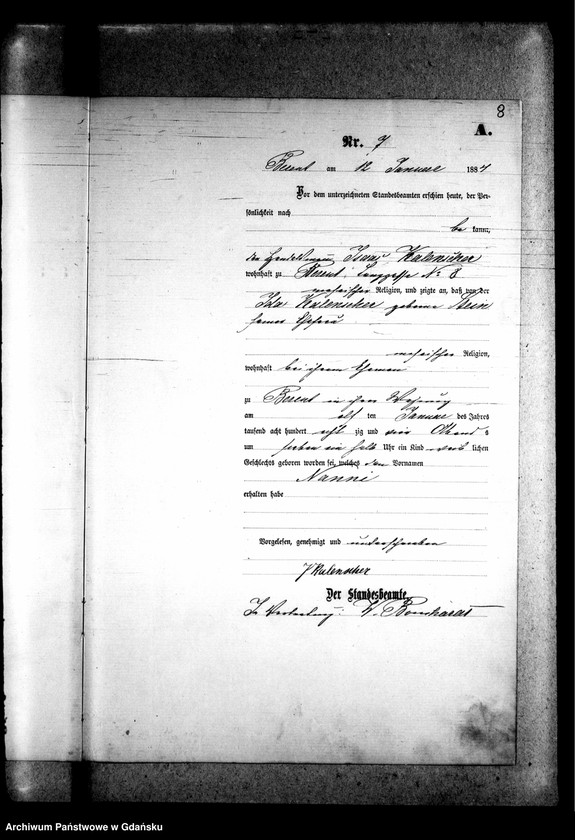 8
A.
Nr. 7
Berent am 12 Januar 1884
Vor dem unterzeichneten Standesbeamten erschien heute, der Per-
sönlichkeit nach
be kannt,
der Handelsmann Isaac Kalenscher
wohnhaft zu Berent, Langgasse No 8
mosaischer Religion, und zeigte an, daß von der
Ida Kalenscher geborene Stein
seiner Ehefrau
mosaischer Religion,
wohnhaft bei ihrem Ehemann
zu Berent in ihrer Wohnung
am elf ten Januar des Jahres
tausend acht hundert acht zig und vier Abend s
um sieben ein halb Uhr ein Kind weib lichen
Geschlechts geboren worden sei, welches den Vornamen
Nanni
erhalten habe
Vorgelesen, genehmigt und unterschrieben
J Kalenscher
Der Standesbeamte.
In Vertretung:
Archiwum Państwowe w Gdańsku